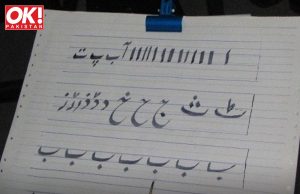 OK!
PAKISTAN
آ ب پ ت
ٹ ث ج ح خ د ڈ ذ ر ڑ ز
ب ب ب ب ب ب ب